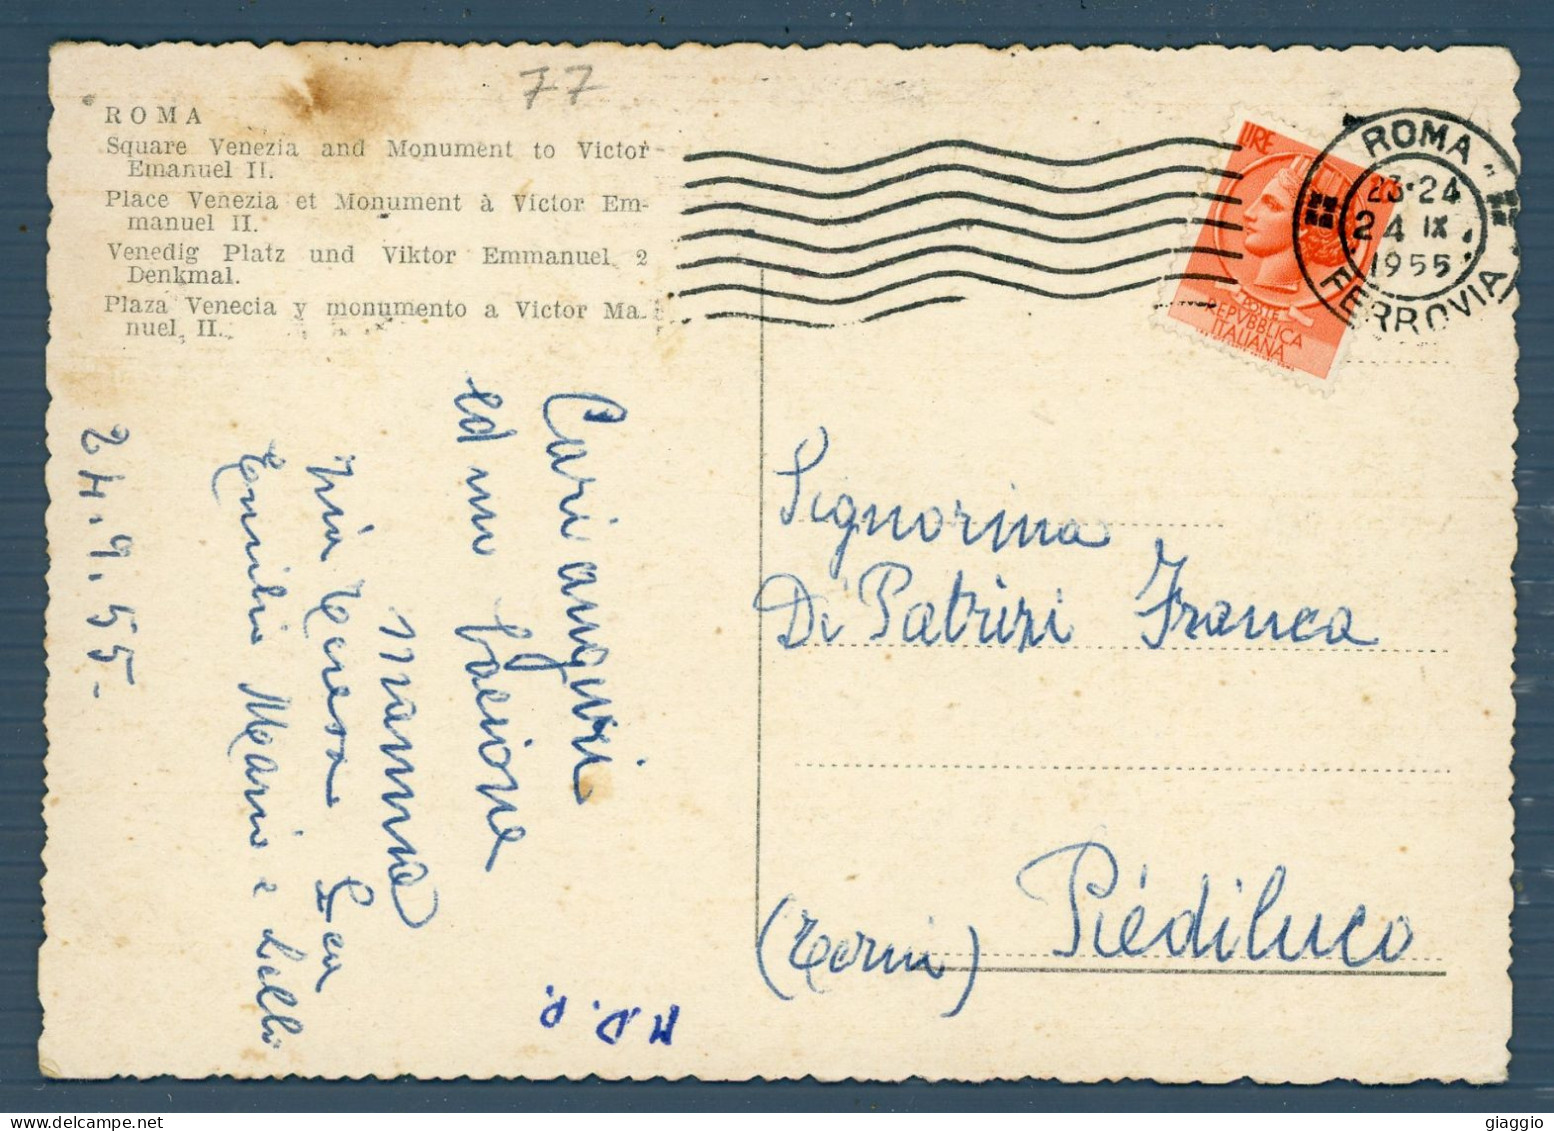 77
ROMA
Square Venezia and Monument to Victor
Emanuel II.
Place Venezia et Monument à Victor Em-
manuel II.
Venedig Platz und Viktor Emmanuel 2
Denkmal.
Plaza Venecia y monumento a Victor Ma-
nuel, II.
LIRE
POSTE
REPVBBLICA
ITALIANA
ROMA
23-24
24 IX
1955
FERROVIA
Cari auguri
ed un bacione
mamma
zia Teresa
Emilio Mario e Lelli
24.9.55-
Signorina
Di Patrizi Franca
Piediluco
(Terni)
giaggio